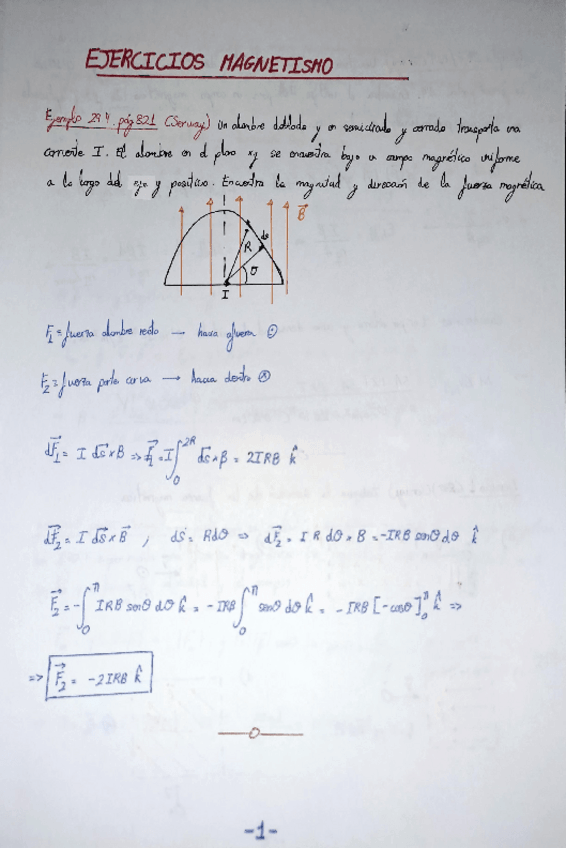 EJERCICIOS MAGNETISMO
Ejemplo 29.4. pág 821 (Serway) Un alambre doblado y en semicírculo y cerrado transporta una
corriente I. El alambre en el plano xy se encuentra bajo un campo magnético uniforme
a lo largo del eje y positivo. Encuentra la magnitud y dirección de la fuerza magnética
B⃗
R
ds
θ
I
F₁ = fuerza alambre recto → hacia afuera ⊙
F₂ = fuerza parte curva → hacia dentro ⊗
dF⃗₁ = I ds⃗ × B ⇒ F⃗₁ = I ∫₀^2R ds⃗ × B = 2IRB k̂
dF⃗₂ = I ds⃗ × B⃗ , ds = Rdθ ⇒ dF⃗₂ = I R dθ × B = -IRB senθ dθ k̂
F⃗₂ = -∫₀^π IRB senθ dθ k̂ = -IRB ∫₀^π senθ dθ k̂ = -IRB [-cosθ]₀^π k̂ =>
=> F⃗₂ = -2IRB k̂
-1-